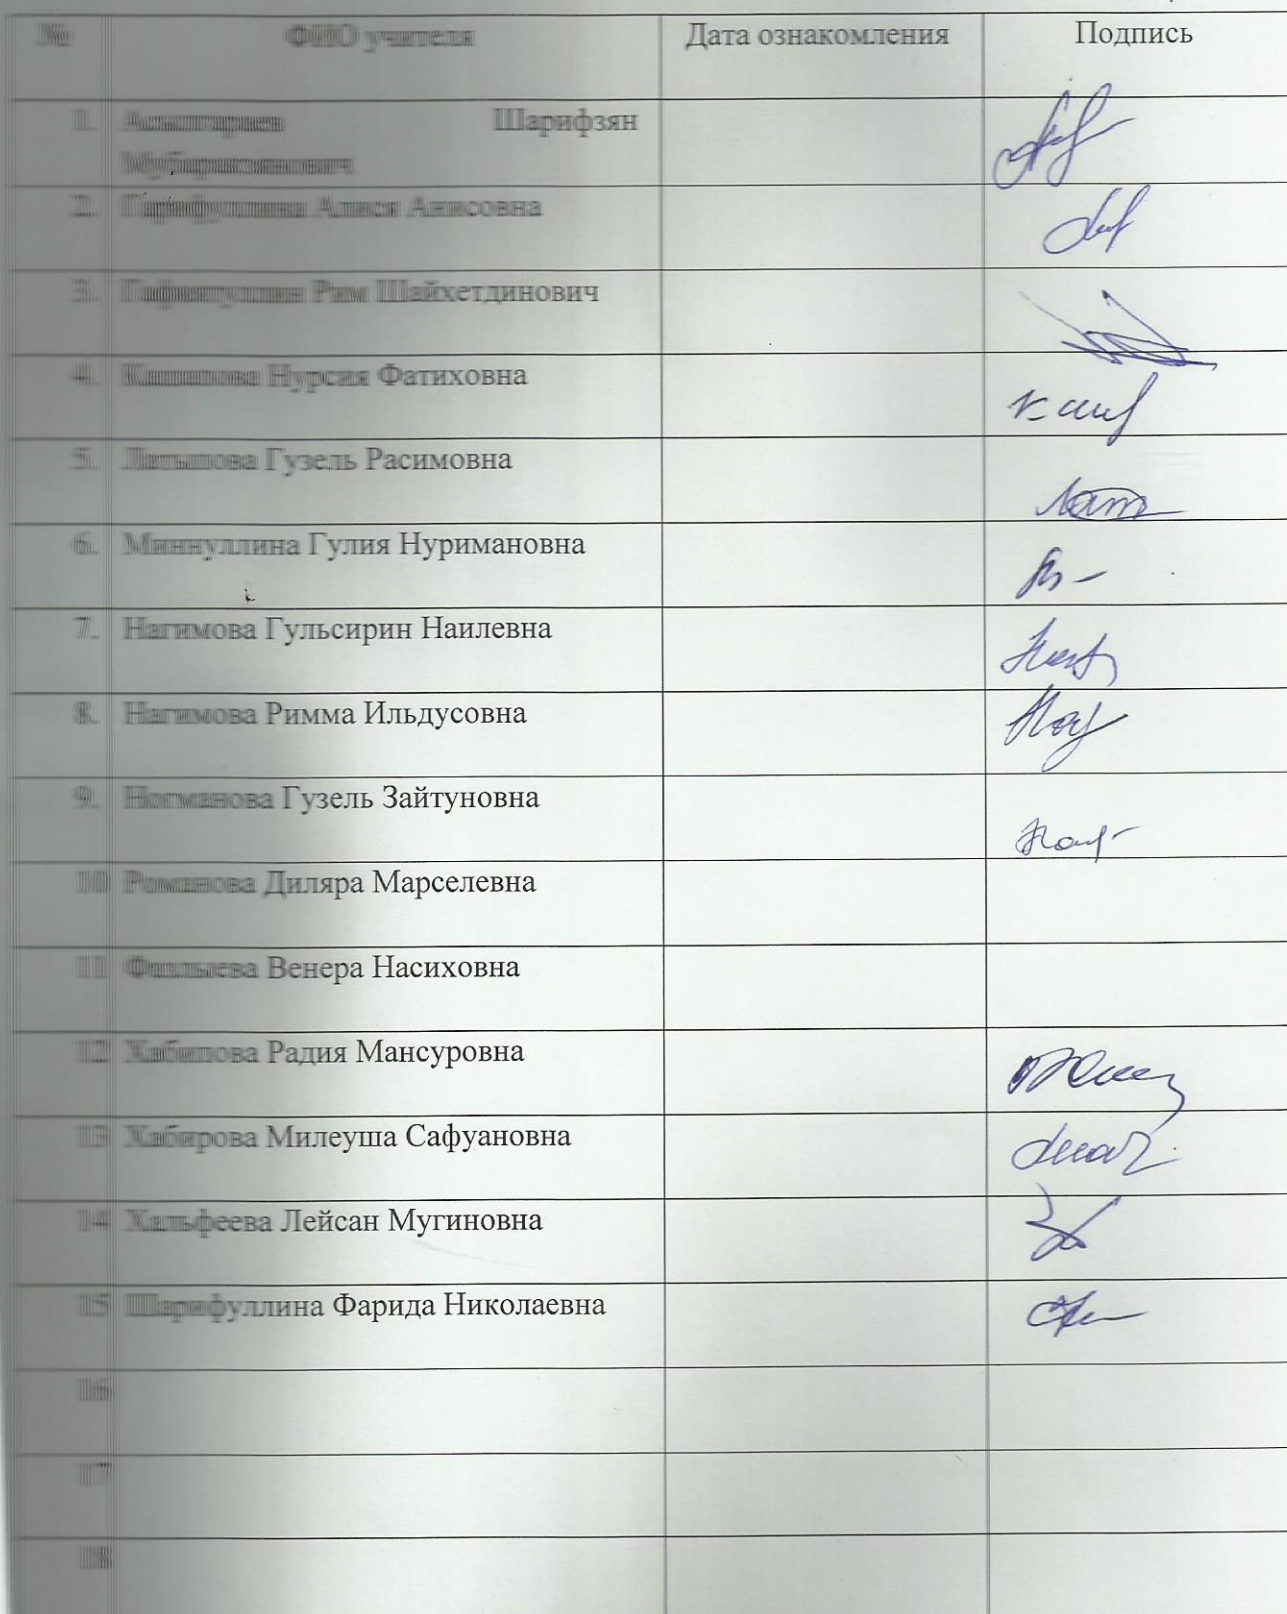 № ФИО учителя Дата ознакомления Подпись
1. Шарифзян
2. Гарифуллина Алися Анисовна
3. Рим Шайхетдинович
4. Кашапова Нурсия Фатиховна
5. Латыпова Гузель Расимовна
6. Миннуллина Гулия Нуримановна
7. Нагимова Гульсирин Наилевна
8. Нагимова Римма Ильдусовна
9. Ногманова Гузель Зайтуновна
10 Романова Диляра Марселевна
11 Фазлыева Венера Насиховна
12 Радия Мансуровна
13 Хабирова Милеуша Сафуановна
14 Хальфеева Лейсан Мугиновна
15 Шарифуллина Фарида Николаевна
16
17
18